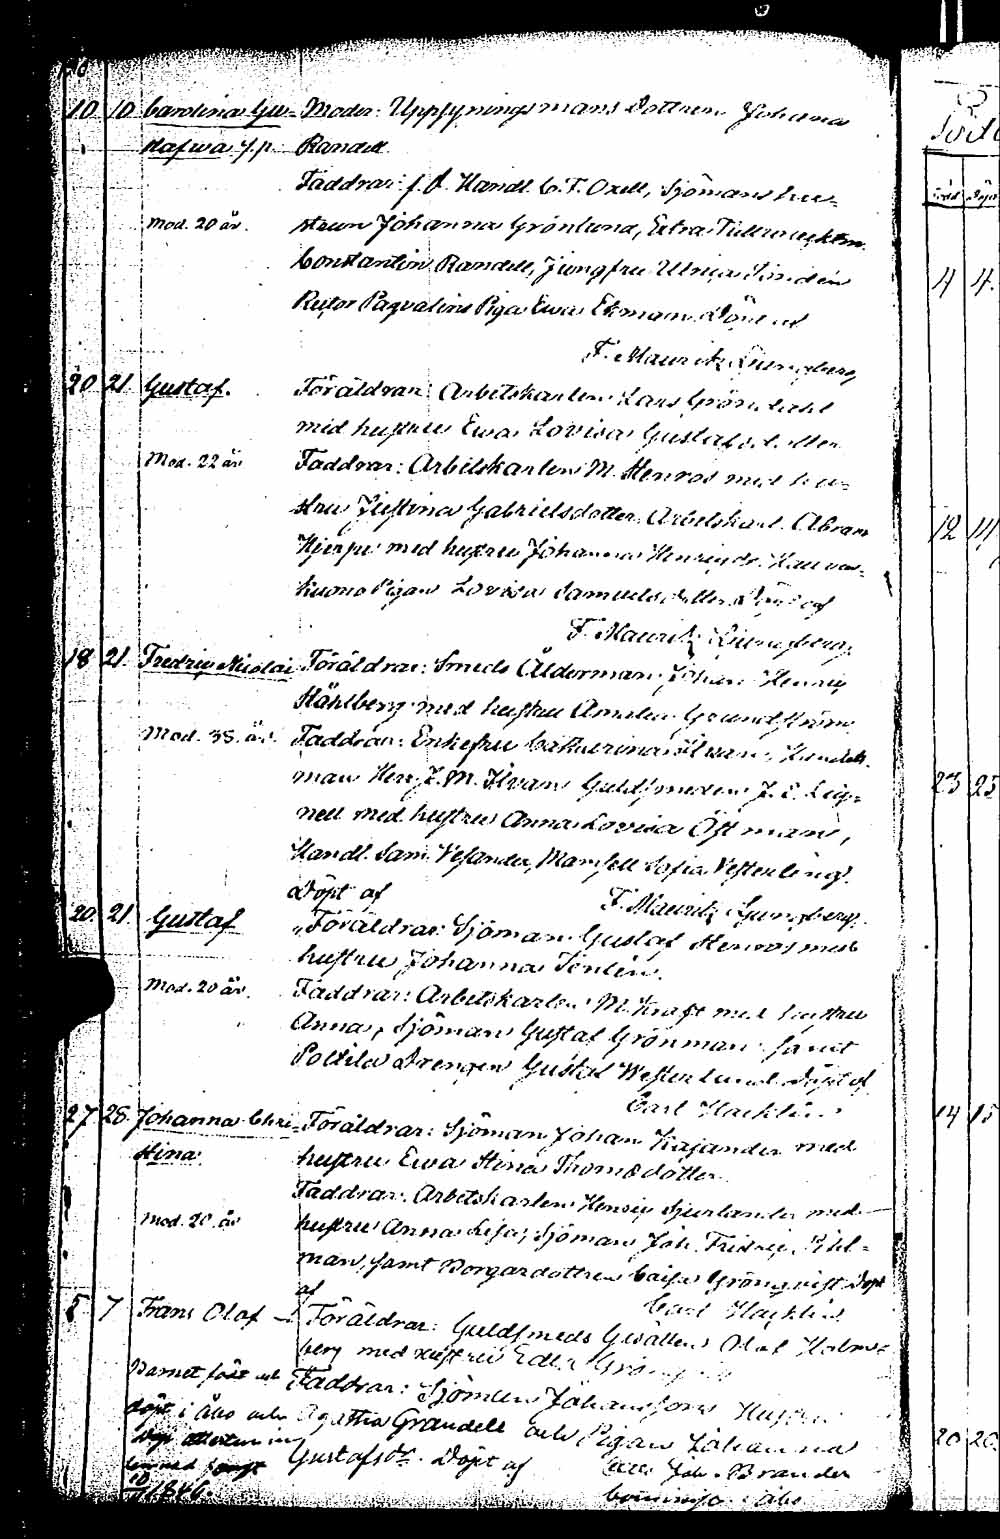 10 10 Carolina Gu- Moder: Uppsyningsmans Dottren Johanna
stafwa f.p. Randell
Faddrar: f.d. Handl. C. F. Oxell, Sjömans hu-
Mod. 20 år. strun Johanna Grönlund, Extra
Constantin Randell, Jungfru Ulrica
Piga Ewa Ekman Döpt af
F. Mauritz Ljungberg
20 21. Gustaf. Föräldrar: Arbetskarlen Lars Gröndahl
med hustru Ewa Lovisa Gustafsdotter
Mod. 22 år Faddrar: Arbetskarlen M. Stenros med hu-
stru Justina Gabrielsdotter, Arbetskarl. Abram
Hjerpe med hustru Johanna Henricsdr.
Pigan Lovisa Samuelsdotter Döpt af
F. Mauritz Ljungberg.
18 21 Fredric Nicolai Föräldrar: Smeds Ålderman Johan Henric
Ståhlberg med hustru Amalia Grundström
Mod. 38. år. Faddrar: Enkefru Catharina
man Herr J. M. Guldsmeden J. E. Lig-
nell med hustru Anna Lovisa Östman,
Handl. Sam. Vesander, Mamsell Sofia Vesterling.
Döpt af F. Mauritz Ljungberg.
20. 21. Gustaf Föräldrar: Sjöman Gustaf Stenros med
hustru Johanna
Mod. 20 år. Faddrar: Arbetskarlen M. Kraft med hustru
Anna, Sjöman Gustaf Grönman samt
Drengen Gustaf Westerlund Döpt af
Carl Hacklin
27 28. Johanna Chri- Föräldrar: Sjöman Johan Kajander med
stina hustru Ewa Stina Thomsdotter
Faddrar: Arbetskarlen Henric Sjerlander med
Mod. 20. år hustru Anna Lisa, Sjöman Joh. Fredric Pihl-
man, samt Borgardottren Caisa Grönqvist Döpt
af Carl Hacklin
5 7 Frans Olof Föräldrar: Guldsmeds Gesällen Olof Holm-
berg med hustru Edla
Barnet födt och Faddrar: Sjömans Johanssons Hustru
döpt i Åbo och Agatha Grandell och Pigan Johanna
Gustafsdr. Döpt af Carl Joh. Brander
10/ 1846. i Åbo
4 4.
12 14
23 25
14 15
20 20.